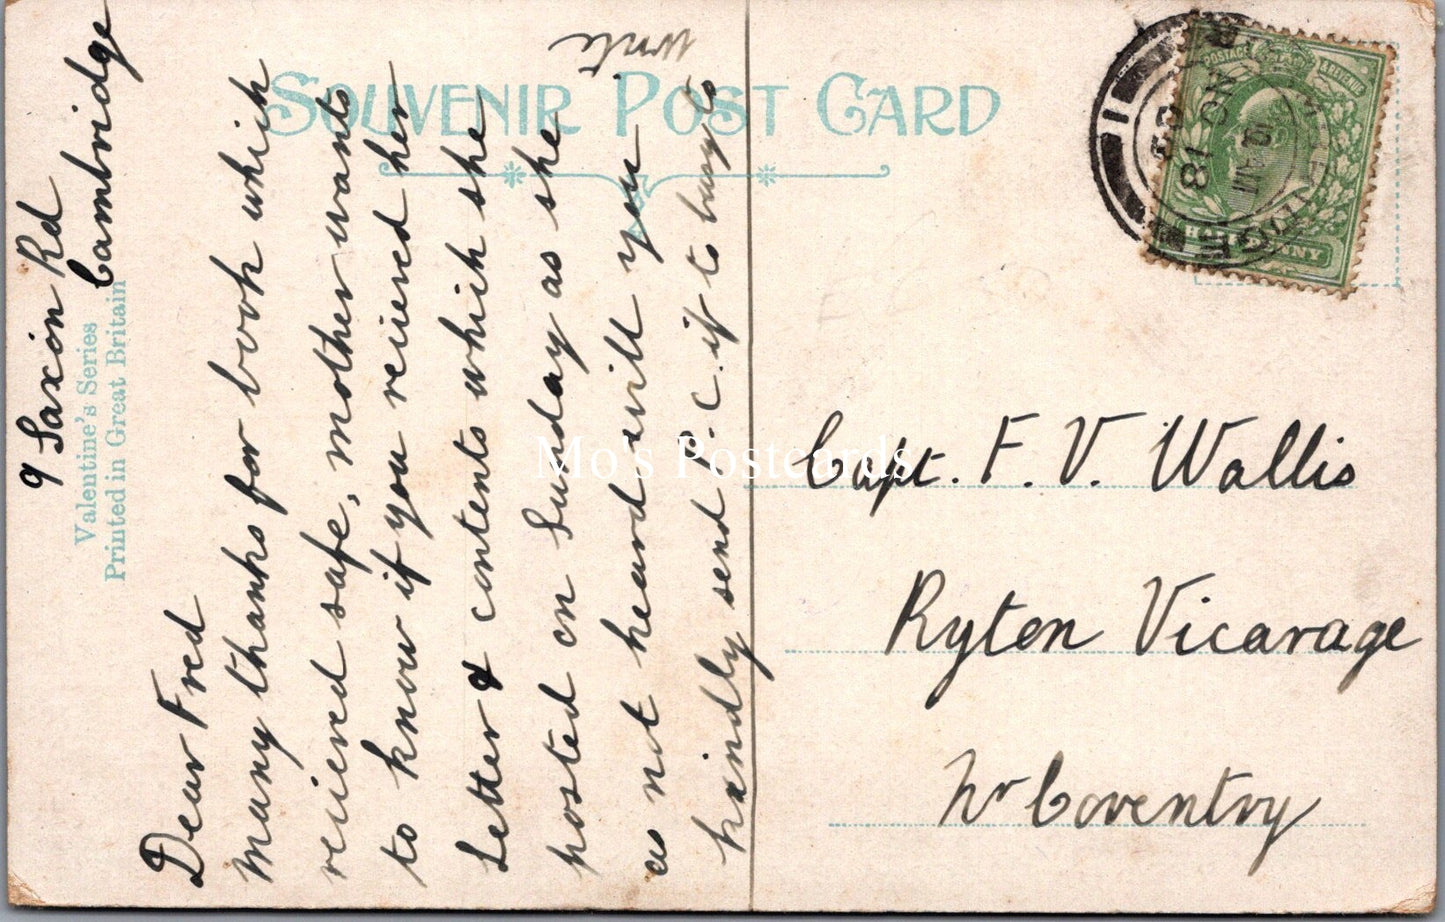 SOUVENIR POST CARD
Valentine's Series
Printed in Great Britain
9 Saxon Rd
Cambridge
Dear Fred
Many thanks for book which
reiieved safe, mother wants
to know if you reiieved her
Letter & contents which she
posted on Sunday as she
as not heard will you
kindly send P.C. if to busy to
write
Capt. F. V. Wallis
Ryton Vicarage
Nr Coventry
POSTAGE
HALFPENNY
Mo's Postcards